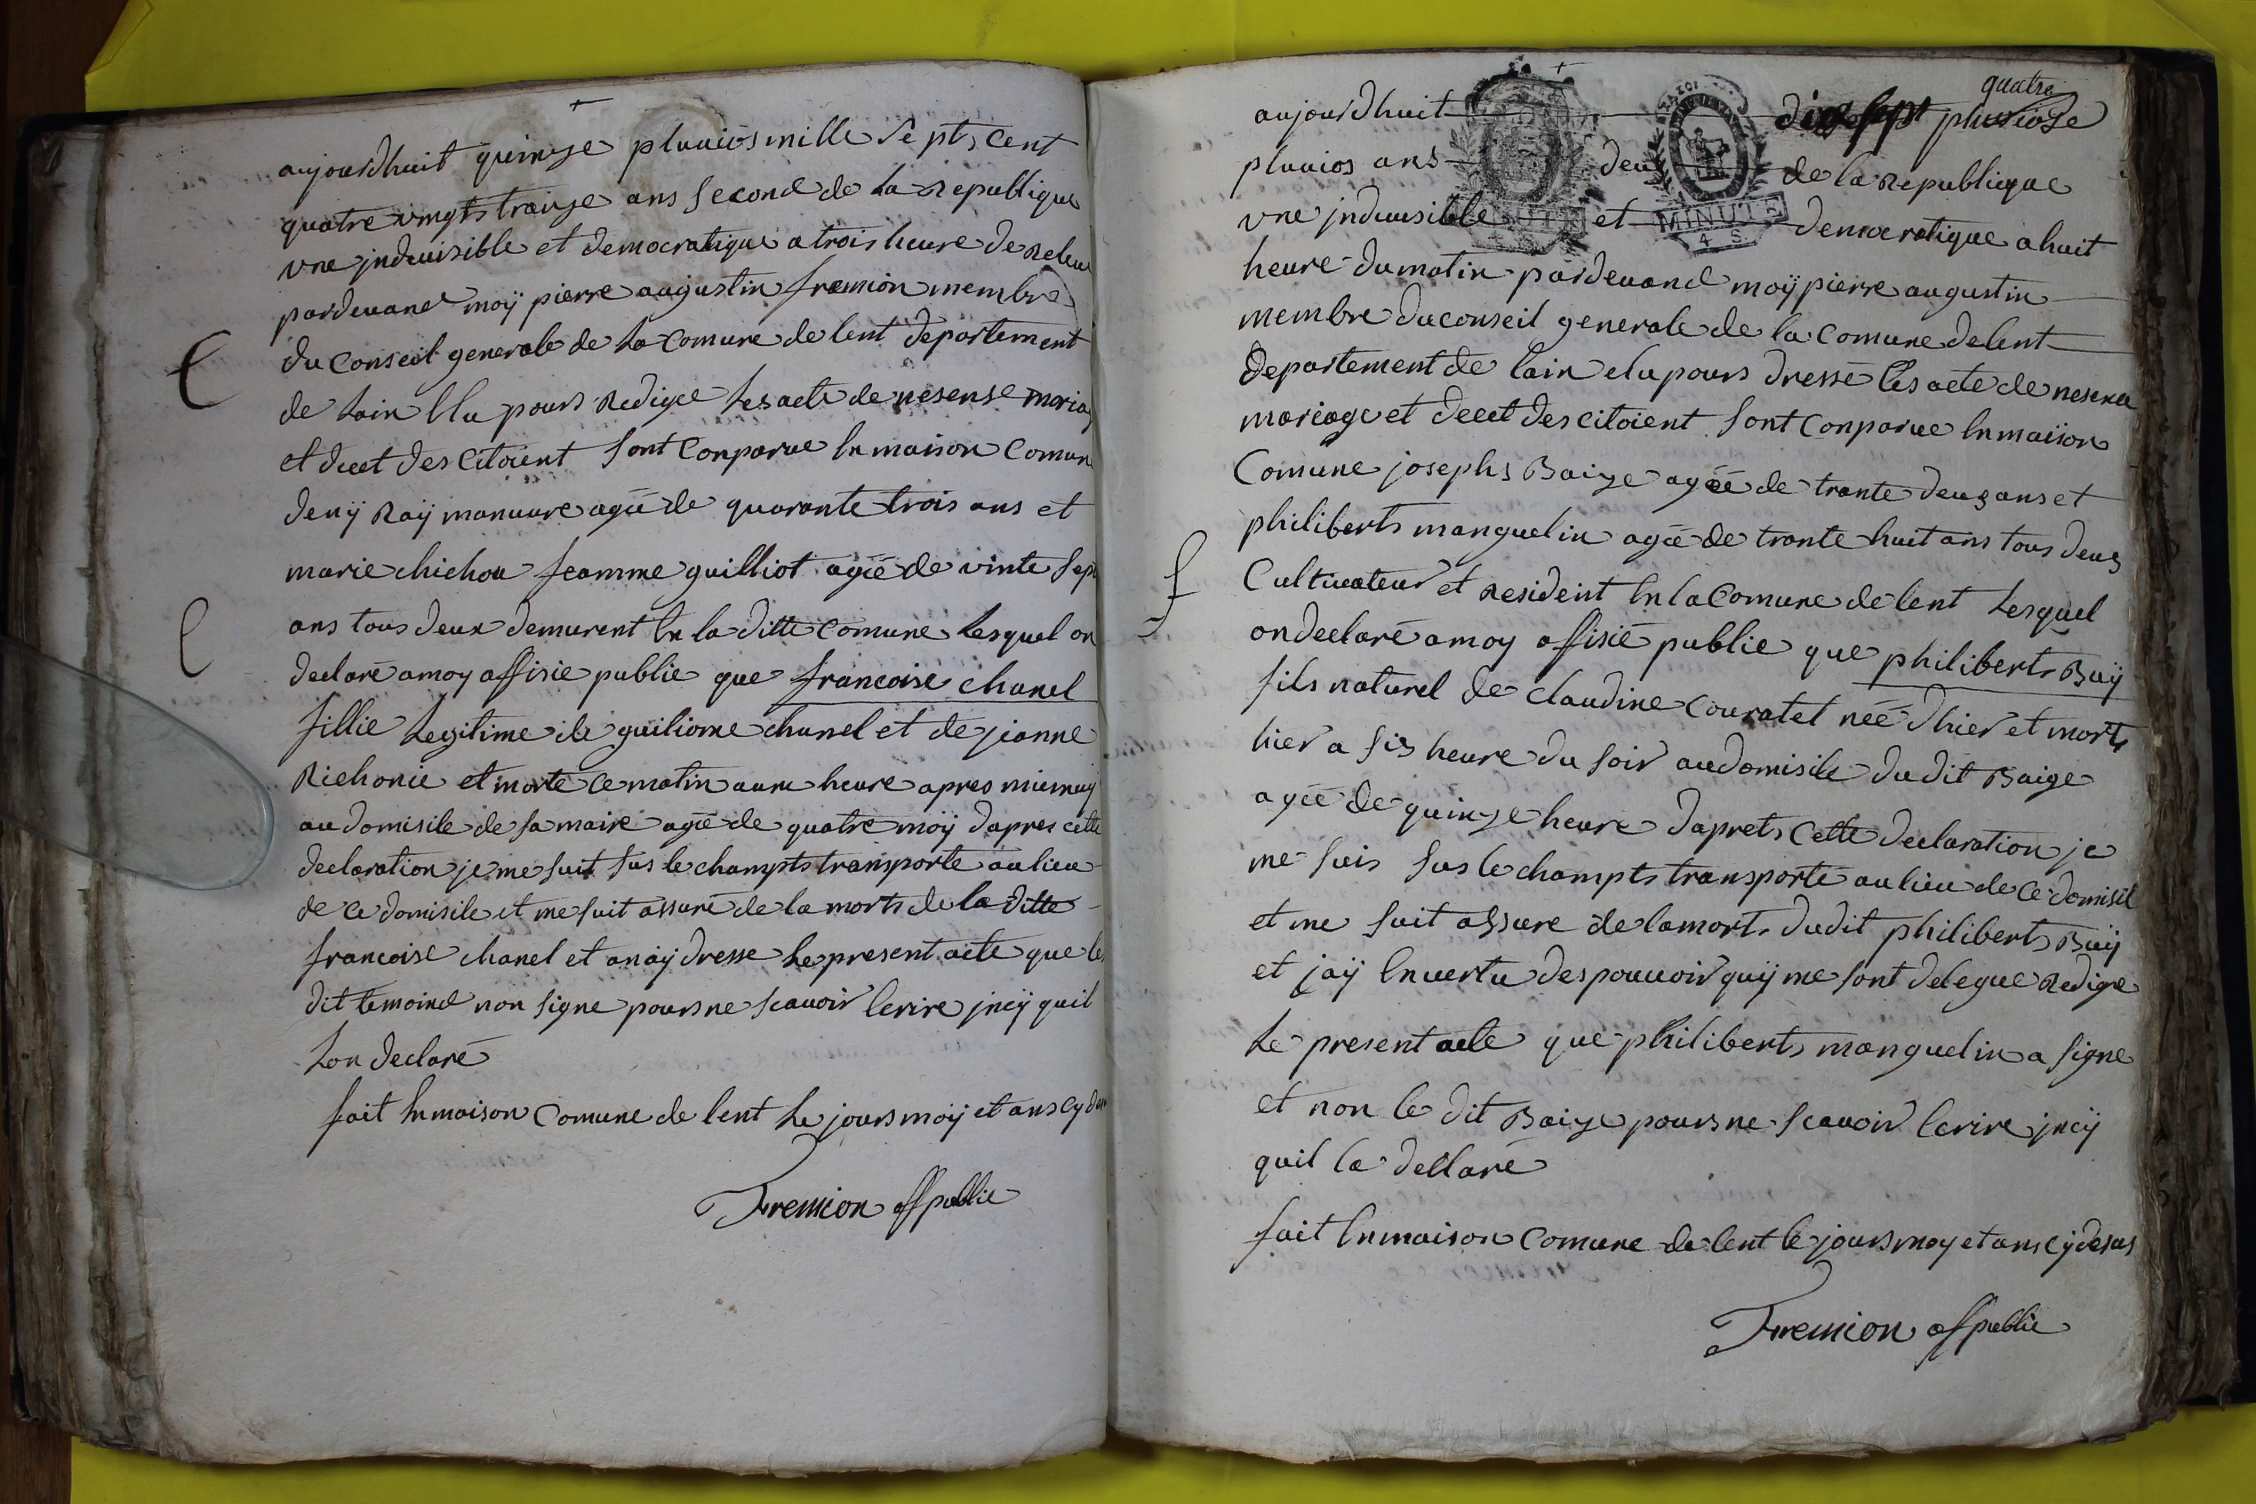 aujourdhuit quinze pluuios mille Sept Cent
quatre vingts traize ans Second de La Republique
vne jndiuisible et democratique a trois heure de Releué
pardeuand moÿ pierre augustin fremion membre
du Conseil generale de La Comune de lent departement
de Lain Elu pours Redigee Les acte de nesense mariag
et decet des Citoient Sont Conparue En maison Comune
denÿ Raÿ manuure ageé de quarante trois ans et
marie chichou feamme guilliot ageé de vinte Sept
ans tous deux demurent En la ditte Comune Lesquel on
declaré a moy offisié public que francoise chanel
fillie Legitime de guiliome chanel et de jeanne
Richonie et morte ce matin a une heure apres mienuy
au domisile de sa maire ageé de quatre moÿ dapres cette
declaration je me suit Sus le champts transporte au lieu
de ce domisile et me suit assuré de la morts de la ditte
francoise chanel et an aÿ dresse Le present acte que les
dit temoind non signe pours ne scauoir Ecrire jncÿ quil
Lon declaré
fait En maison Comune de lent Le jours moÿ et ans cy
Fremion off public
quatre
aujourdhuit pluuiose
pluuios ans deus de la Republique
vne jndiuisible et democratique a huit
heure du matin pardeuand moÿ pierre augustin
membre du conseil generale de la Comune de lent
departement de lain elu pours dressé les acte de nesence
mariage et decet des citoient Sont Conparue En maison
Comune josephs Baize ageé de trante deus ans et
philiberts manguelin ageé de trante huit ans tous deus
Cultiuateur et Resident En la Comune de lent Lesquel
on declaré a moy offisié public que philiberts Buÿ
fils naturel de Claudine Couratet neé dhier et morts
hier a sis heure du soir au domisile du dit Baize
ageé de quinze heure daprets Cette declaration je
me suis Sus le champts transporté au lieu de ce domisil
et me suit assure de la morts dudit philiberts Buÿ
et jaÿ En uertu des pouuoir quÿ me sont delegue Redige
Le present acte que philiberts manguelin a signe
et non le dit Baize pours ne scauoir Ecrire jncÿ
quil la declaré
fait En maison Comune de lent le jours moy et ans cÿ desus
Fremion off public
MINUTE
4 S.